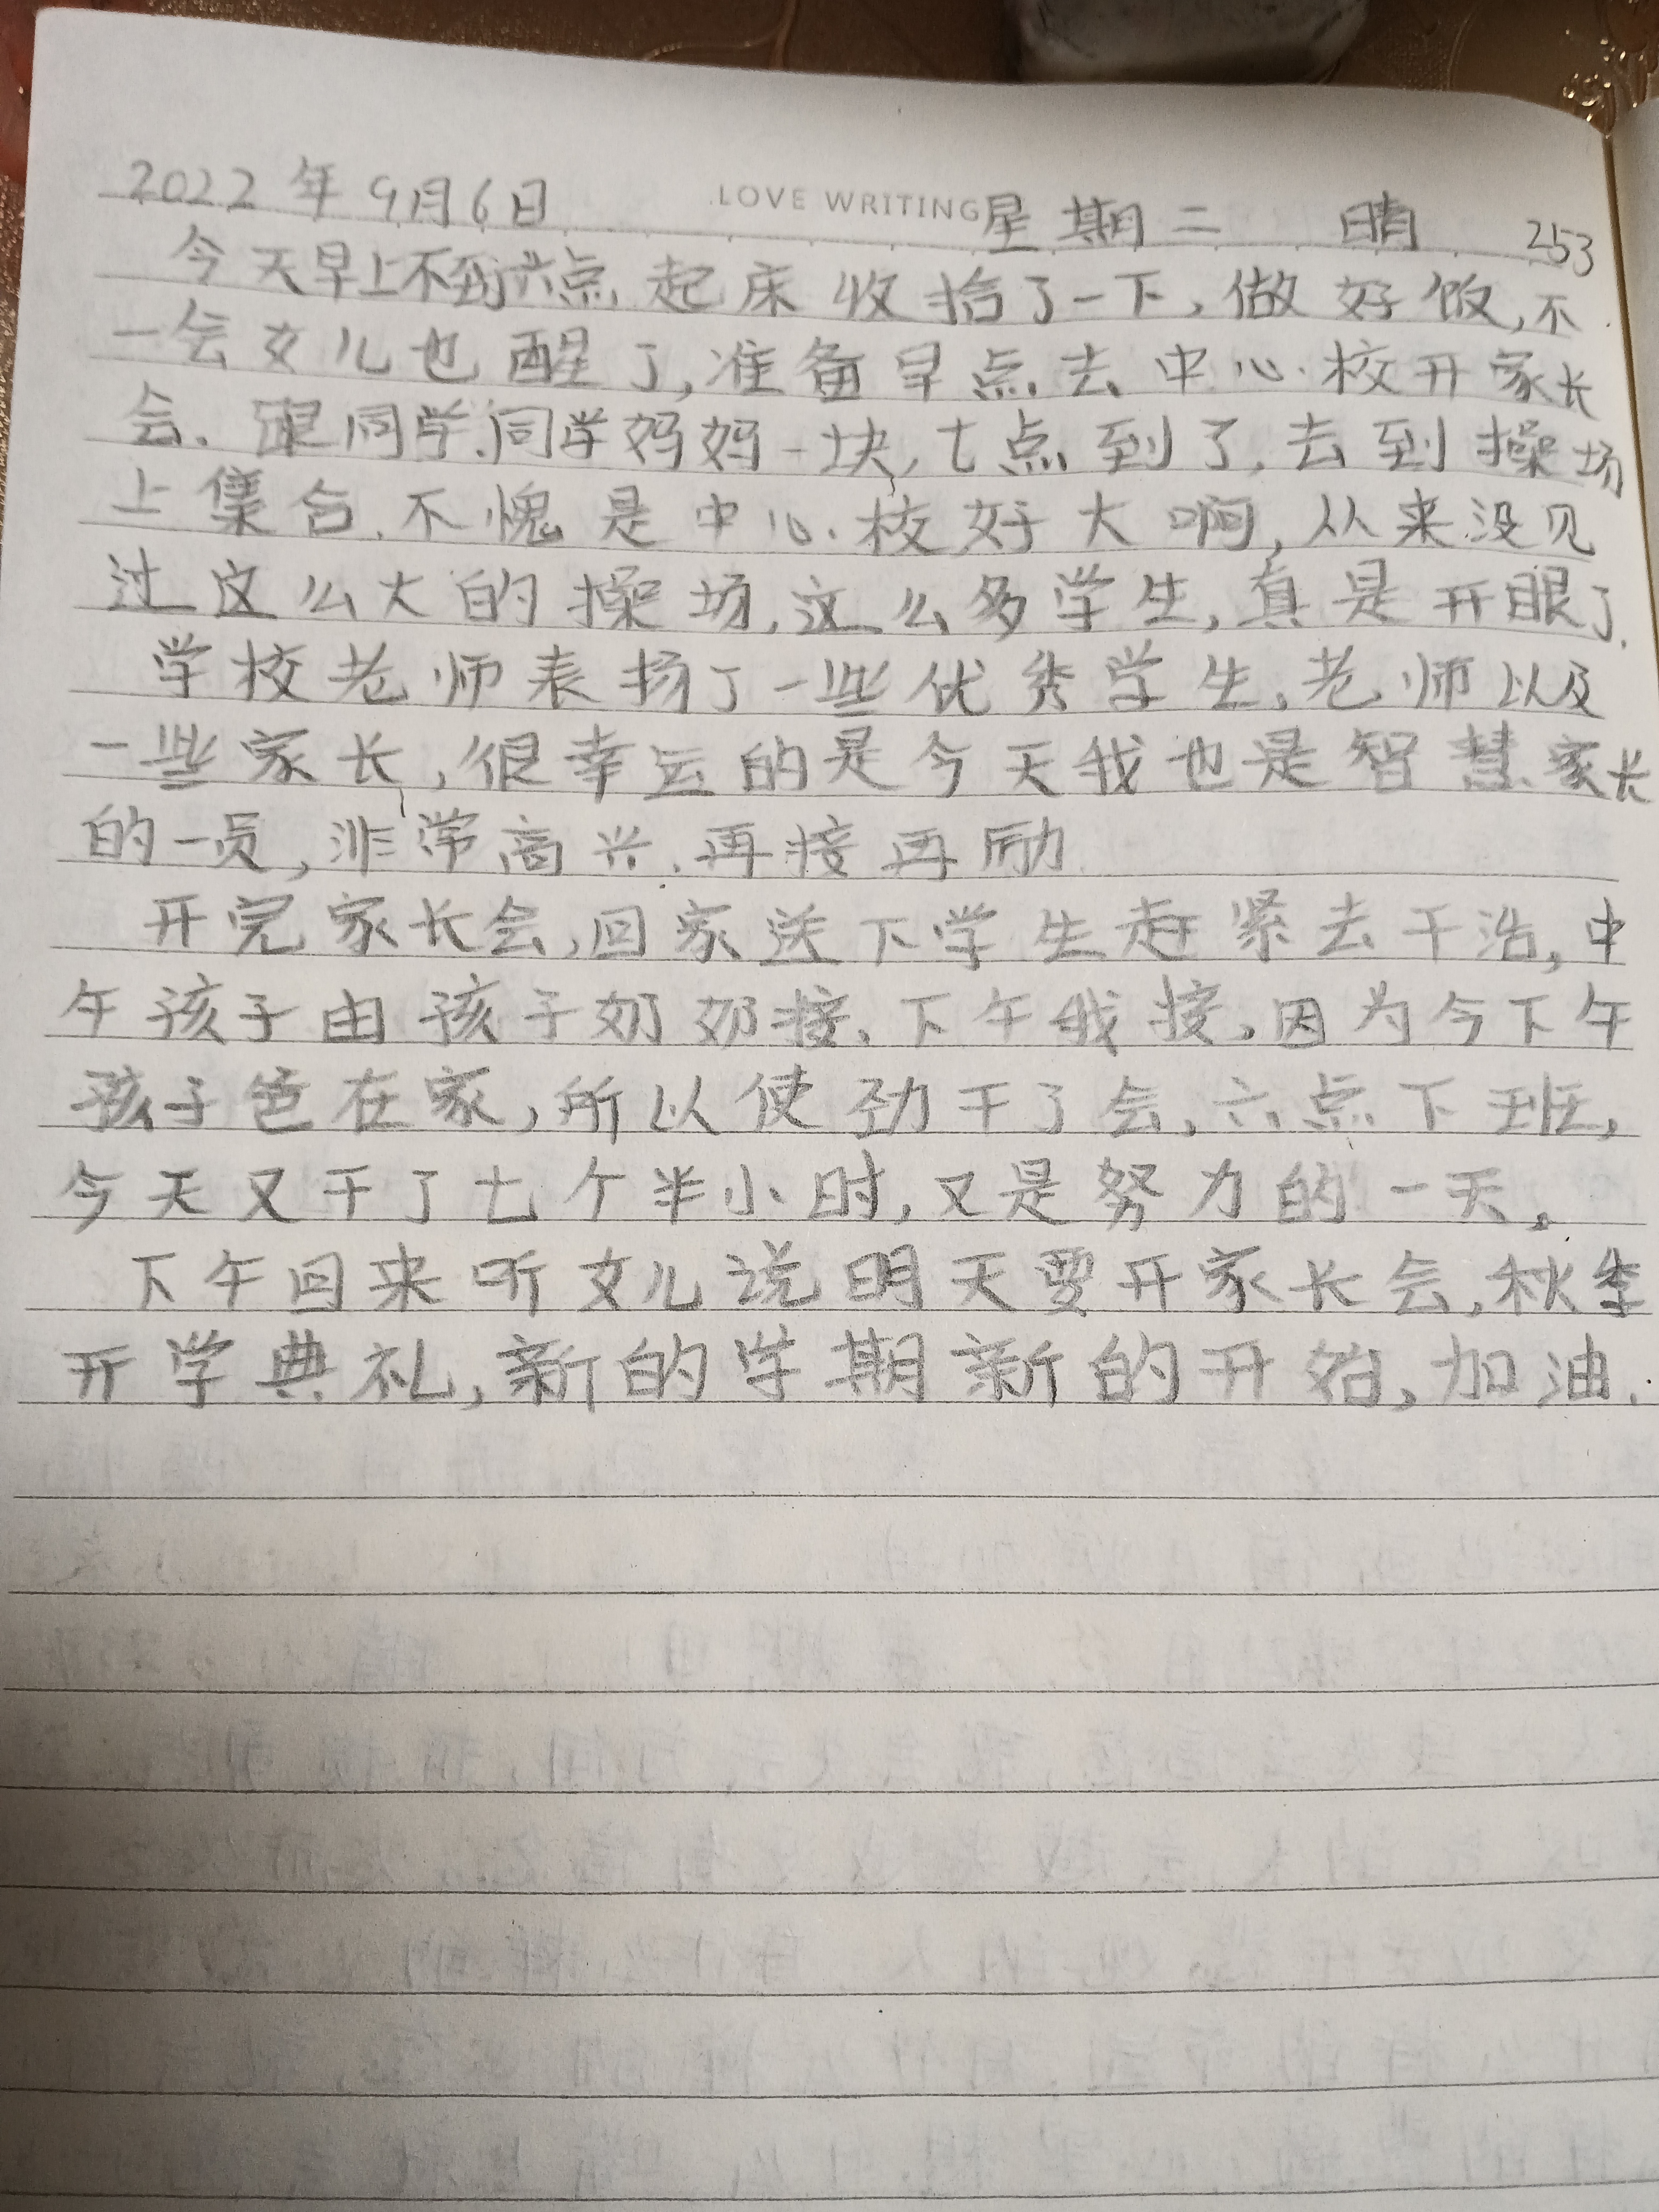 LOVE WRITING
2022年9月6日 星期二 晴 253
今天早上不到六点起床收拾了一下,做好饭,不
一会女儿也醒了,准备早点去中心校开家长
会.跟同学.同学妈妈一块,七点到了,去到操场
上集合.不愧是中心校好大啊,从来没见
过这么大的操场,这么多学生,真是开眼了.
学校老师表扬了一些优秀学生,老师以及
一些家长,很幸运的是今天我也是智慧家长
的一员,非常高兴.再接再励.
开完家长会,回家送下学生赶紧去干活,中
午孩子由孩子奶奶接.下午我接,因为今下午
孩子爸在家,所以使劲干了会,六点下班,
今天又干了七个半小时,又是努力的一天。
下午回来听女儿说明天要开家长会,秋季
开学典礼,新的学期新的开始,加油.